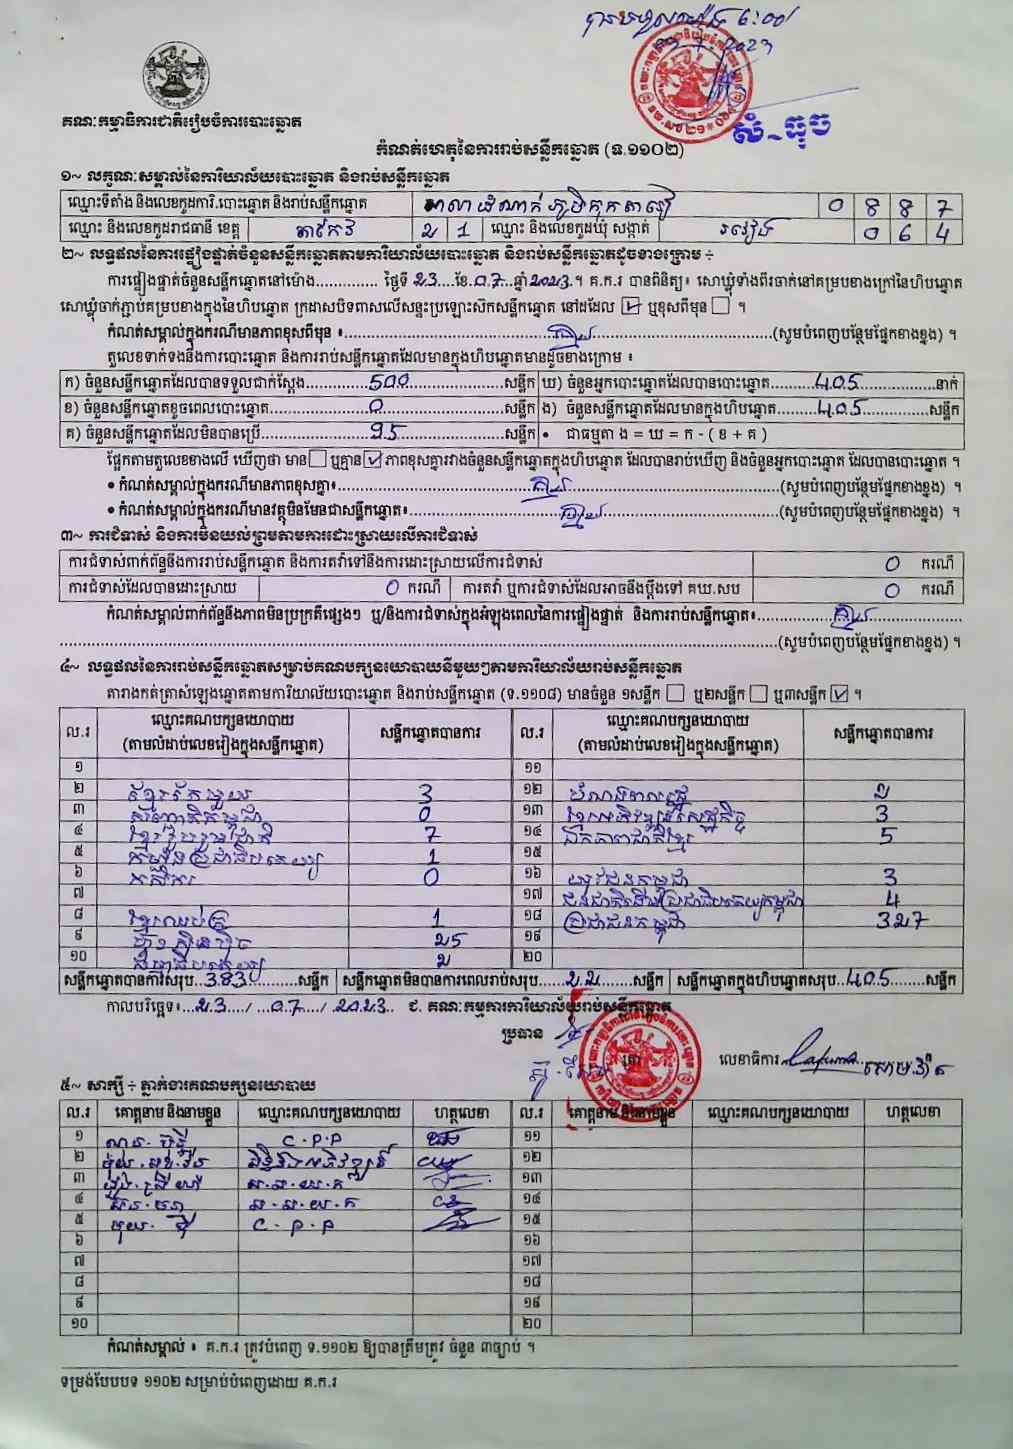 ៦:00
គណៈកម្មាធិការជាតិរៀបចំការបោះឆ្នោត
កំណត់ហេតុនៃការរាប់សន្លឹកឆ្នោត (ទ.១១០២)
១~ លក្ខណៈសម្គាល់នៃការិយាល័យបោះឆ្នោត និងរាប់សន្លឹកឆ្នោត
ឈ្មោះទីតាំង និងលេខកូដការិ.បោះឆ្នោត និងរាប់សន្លឹកឆ្នោត 0 8 8 7
ឈ្មោះ និងលេខកូដរាជធានី ខេត្ត តាកែវ 2 1 ឈ្មោះ និងលេខកូដឃុំ សង្កាត់ 0 6 4
២~ លទ្ធផលនៃការផ្ទៀងផ្ទាត់ចំនួនសន្លឹកឆ្នោតតាមការិយាល័យបោះឆ្នោត និងរាប់សន្លឹកឆ្នោតដូចខាងក្រោម ÷
ការផ្ទៀងផ្ទាត់ចំនួនសន្លឹកឆ្នោតនៅម៉ោង.............. ថ្ងៃទី 23 ខែ 07 ឆ្នាំ 2023 ។ គ.ក.រ បានពិនិត្យ៖ សោឃ្លុំទាំងពីរចាក់នៅគម្របខាងក្រៅនៃហិបឆ្នោត
សោឃ្លុំចាក់ភ្ជាប់គម្របខាងក្នុងនៃហិបឆ្នោត ក្រដាសបិទពាសលើសន្ទះប្រឡោះសៀតសន្លឹកឆ្នោត នៅដដែល ☑ ឬខុសពីមុន ☐ ។
កំណត់សម្គាល់ក្នុងករណីមានភាពខុសពីមុន ៖ គ្មាន (សូមបំពេញបន្ថែមផ្នែកខាងខ្នង) ។
តួលេខទាក់ទងនឹងការបោះឆ្នោត និងការរាប់សន្លឹកឆ្នោតដែលមានក្នុងហិបឆ្នោតមានដូចខាងក្រោម ៖
ក) ចំនួនសន្លឹកឆ្នោតដែលបានទទួលជាក់ស្តែង 500 សន្លឹក ឃ) ចំនួនអ្នកបោះឆ្នោតដែលបានបោះឆ្នោត 405 នាក់
ខ) ចំនួនសន្លឹកឆ្នោតខូចពេលបោះឆ្នោត 0 សន្លឹក ង) ចំនួនសន្លឹកឆ្នោតដែលមានក្នុងហិបឆ្នោត 405 សន្លឹក
គ) ចំនួនសន្លឹកឆ្នោតដែលមិនបានប្រើ 95 សន្លឹក • ជាធម្មតា ង = ឃ = ក - ( ខ + គ )
ផ្អែកតាមតួលេខខាងលើ ឃើញថា មាន ☐ ឬគ្មាន ☑ ភាពខុសគ្នារវាងចំនួនសន្លឹកឆ្នោតក្នុងហិបឆ្នោត ដែលបានរាប់ឃើញ និងចំនួនអ្នកបោះឆ្នោត ដែលបានបោះឆ្នោត ។
• កំណត់សម្គាល់ក្នុងករណីមានភាពខុសគ្នា៖ គ្មាន (សូមបំពេញបន្ថែមផ្នែកខាងខ្នង) ។
• កំណត់សម្គាល់ក្នុងករណីមានវត្ថុមិនមែនជាសន្លឹកឆ្នោត៖ គ្មាន (សូមបំពេញបន្ថែមផ្នែកខាងខ្នង) ។
៣~ ការជំទាស់ និងការមិនយល់ព្រមតាមការដោះស្រាយលើការជំទាស់
ការជំទាស់ពាក់ព័ន្ធនឹងការរាប់សន្លឹកឆ្នោត និងការតវ៉ាទៅនឹងការដោះស្រាយលើការជំទាស់ 0 ករណី
ការជំទាស់ដែលបានដោះស្រាយ 0 ករណី ការតវ៉ា ឬការជំទាស់ដែលអាចនឹងប្តឹងទៅ គឃ.សប 0 ករណី
កំណត់សម្គាល់ពាក់ព័ន្ធនឹងភាពមិនប្រក្រតីផ្សេងៗ ឬ/និងការជំទាស់ក្នុងអំឡុងពេលនៃការផ្ទៀងផ្ទាត់ និងការរាប់សន្លឹកឆ្នោត៖ គ្មាន
(សូមបំពេញបន្ថែមផ្នែកខាងខ្នង) ។
៤~ លទ្ធផលនៃការរាប់សន្លឹកឆ្នោតសម្រាប់គណបក្សនយោបាយនីមួយៗតាមការិយាល័យរាប់សន្លឹកឆ្នោត
តារាងកត់ត្រាសំឡេងឆ្នោតតាមការិយាល័យបោះឆ្នោត និងរាប់សន្លឹកឆ្នោត (ទ.១១០៨) មានចំនួន ១សន្លឹក ☐ ឬ២សន្លឹក ☐ ឬ៣សន្លឹក ☑ ។
ល.រ ឈ្មោះគណបក្សនយោបាយ (តាមលំដាប់លេខរៀងក្នុងសន្លឹកឆ្នោត) សន្លឹកឆ្នោតបានការ ល.រ ឈ្មោះគណបក្សនយោបាយ (តាមលំដាប់លេខរៀងក្នុងសន្លឹកឆ្នោត) សន្លឹកឆ្នោតបានការ
១ ១១
២ ខ្មែររែកមួយ 3 ១២ 2
៣ សញ្ជាតិកម្ពុជា 0 ១៣ ខ្មែរអភិវឌ្ឍន៍សេដ្ឋកិច្ច 3
៤ ខ្មែររួបរួមជាតិ 7 ១៤ ឯកភាពជាតិខ្មែរ 5
៥ កម្ពុជាប្រជាធិបតេយ្យ 1 ១៥
៦ កសិករ 0 ១៦ យុវជនកម្ពុជា 3
៧ ១៧ ជនជាតិដើមប្រជាធិបតេយ្យកម្ពុជា 4
៨ ខ្មែរឈប់ក្រ 1 ១៨ ប្រជាជនកម្ពុជា 327
៩ ហ៊្វុនស៊ិនប៉ិច 25 ១៩
១០ 2 ២០
សន្លឹកឆ្នោតបានការសរុប 383 សន្លឹក សន្លឹកឆ្នោតមិនបានការពេលរាប់សរុប 22 សន្លឹក សន្លឹកឆ្នោតក្នុងហិបឆ្នោតសរុប 405 សន្លឹក
កាលបរិច្ឆេទ៖ 23 / 07 / 2023 ជ. គណៈកម្មការការិយាល័យរាប់សន្លឹកឆ្នោត
ប្រធាន
លេខាធិការ
៥~ សាក្សី ÷ ភ្នាក់ងារគណបក្សនយោបាយ
ល.រ គោត្តនាម និងនាមខ្លួន ឈ្មោះគណបក្សនយោបាយ ហត្ថលេខា ល.រ គោត្តនាម និងនាមខ្លួន ឈ្មោះគណបក្សនយោបាយ ហត្ថលេខា
១ C.P.P ១១
២ ១២
៣ ស.ស.យ.ក ១៣
៤ ស.ស.យ.ក ១៤
៥ C.P.P ១៥
៦ ១៦
៧ ១៧
៨ ១៨
៩ ១៩
១០ ២០
កំណត់សម្គាល់ ៖ គ.ក.រ ត្រូវបំពេញ ទ.១១០២ ឱ្យបានត្រឹមត្រូវ ចំនួន ៣ច្បាប់ ។
ទម្រង់បែបបទ ១១០២ សម្រាប់បំពេញដោយ គ.ក.រ